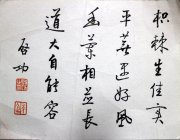 枳棘生佳实
平蕪遇好風
幽蘭相並長
道大自能容
啓功